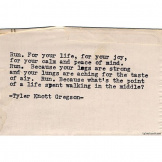 Run. For your life, for your joy,
for your calm and peace of mind.
Run. Because your legs are strong
and your lungs are aching for the taste
of air. Run. Because what's the point
of a life spent walking in the middle?
-Tyler Knott Gregson-